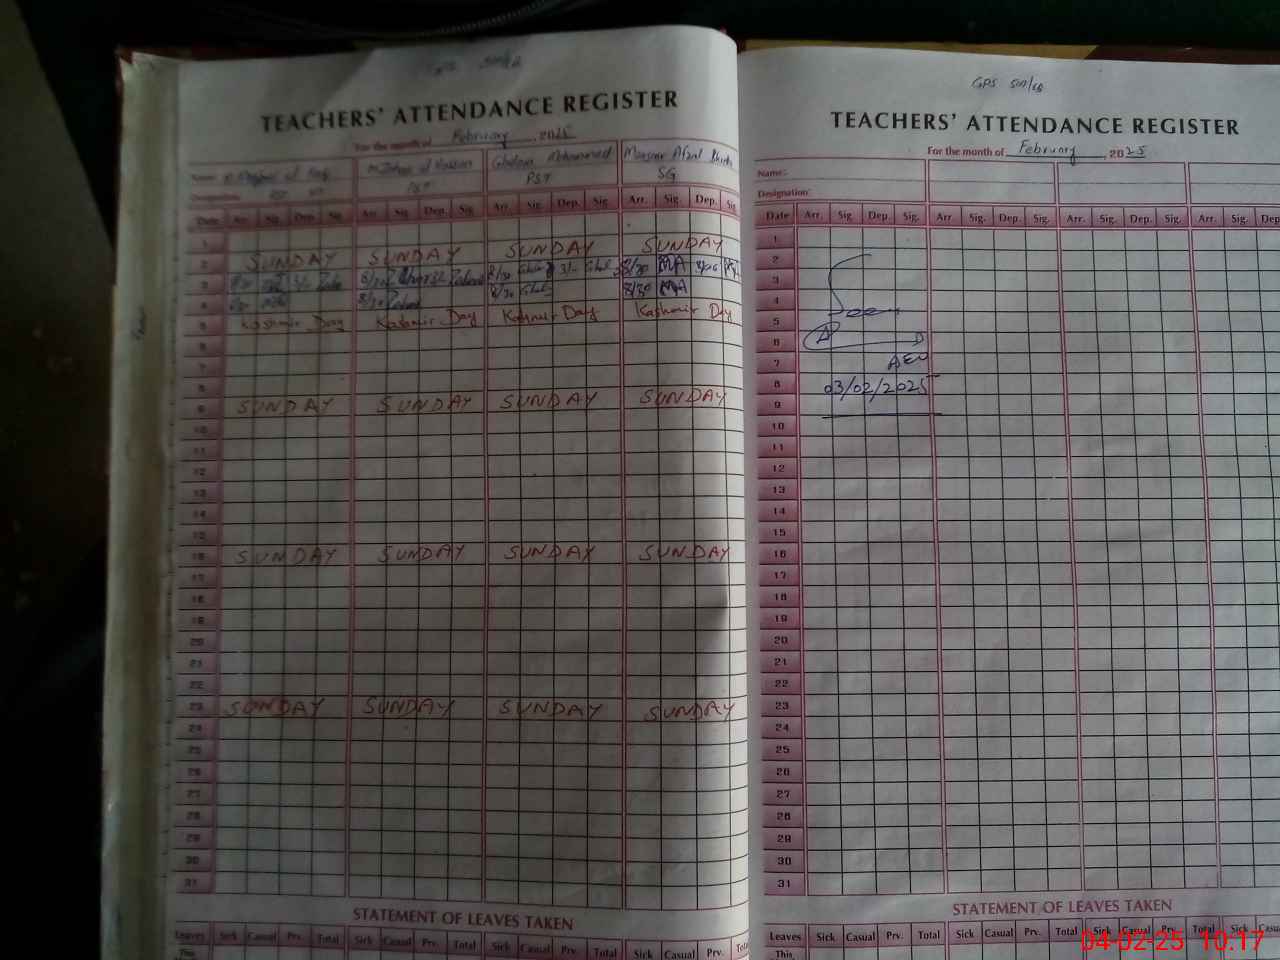 TEACHERS' ATTENDANCE REGISTER
For the month of February 2025
Name: Ghulam Mohammad Mansoor Afzal
Designation: PST PST SG
Date Arr. Sig. Dep. Sig. Arr. Sig. Dep. Sig. Arr. Sig. Dep. Sig. Arr. Sig. Dep. Sig.
1
2 SUNDAY SUNDAY SUNDAY SUNDAY
3 8/30 3/- 8/30 8/30 3/- 8/30 MA
4 8/30 8/30 8/30 8/30 MA
5 Kashmir Day Kashmir Day Kashmir Day Kashmir Day
6
7
8
9 SUNDAY SUNDAY SUNDAY SUNDAY
10
11
12
13
14
15
16 SUNDAY SUNDAY SUNDAY SUNDAY
17
18
19
20
21
22
23 SUNDAY SUNDAY SUNDAY SUNDAY
24
25
26
27
28
29
30
31
STATEMENT OF LEAVES TAKEN
Leaves Sick Casual Prv. Total Sick Casual Prv. Total Sick Casual Prv. Total Sick Casual Prv. Total
This
GPS
TEACHERS' ATTENDANCE REGISTER
For the month of February 2025
Name:
Designation:
Date Arr. Sig. Dep. Sig. Arr. Sig. Dep. Sig. Arr. Sig. Dep. Sig. Arr. Sig. Dep.
1
2
3
4
Seen
5
6
7 AEO
8 03/02/2025
9
10
11
12
13
14
15
16
17
18
19
20
21
22
23
24
25
26
27
28
29
30
31
STATEMENT OF LEAVES TAKEN
Leaves Sick Casual Prv. Total Sick Casual Prv. Total Sick Casual Prv. Total Sick Casual
This
04-02-25 10:17